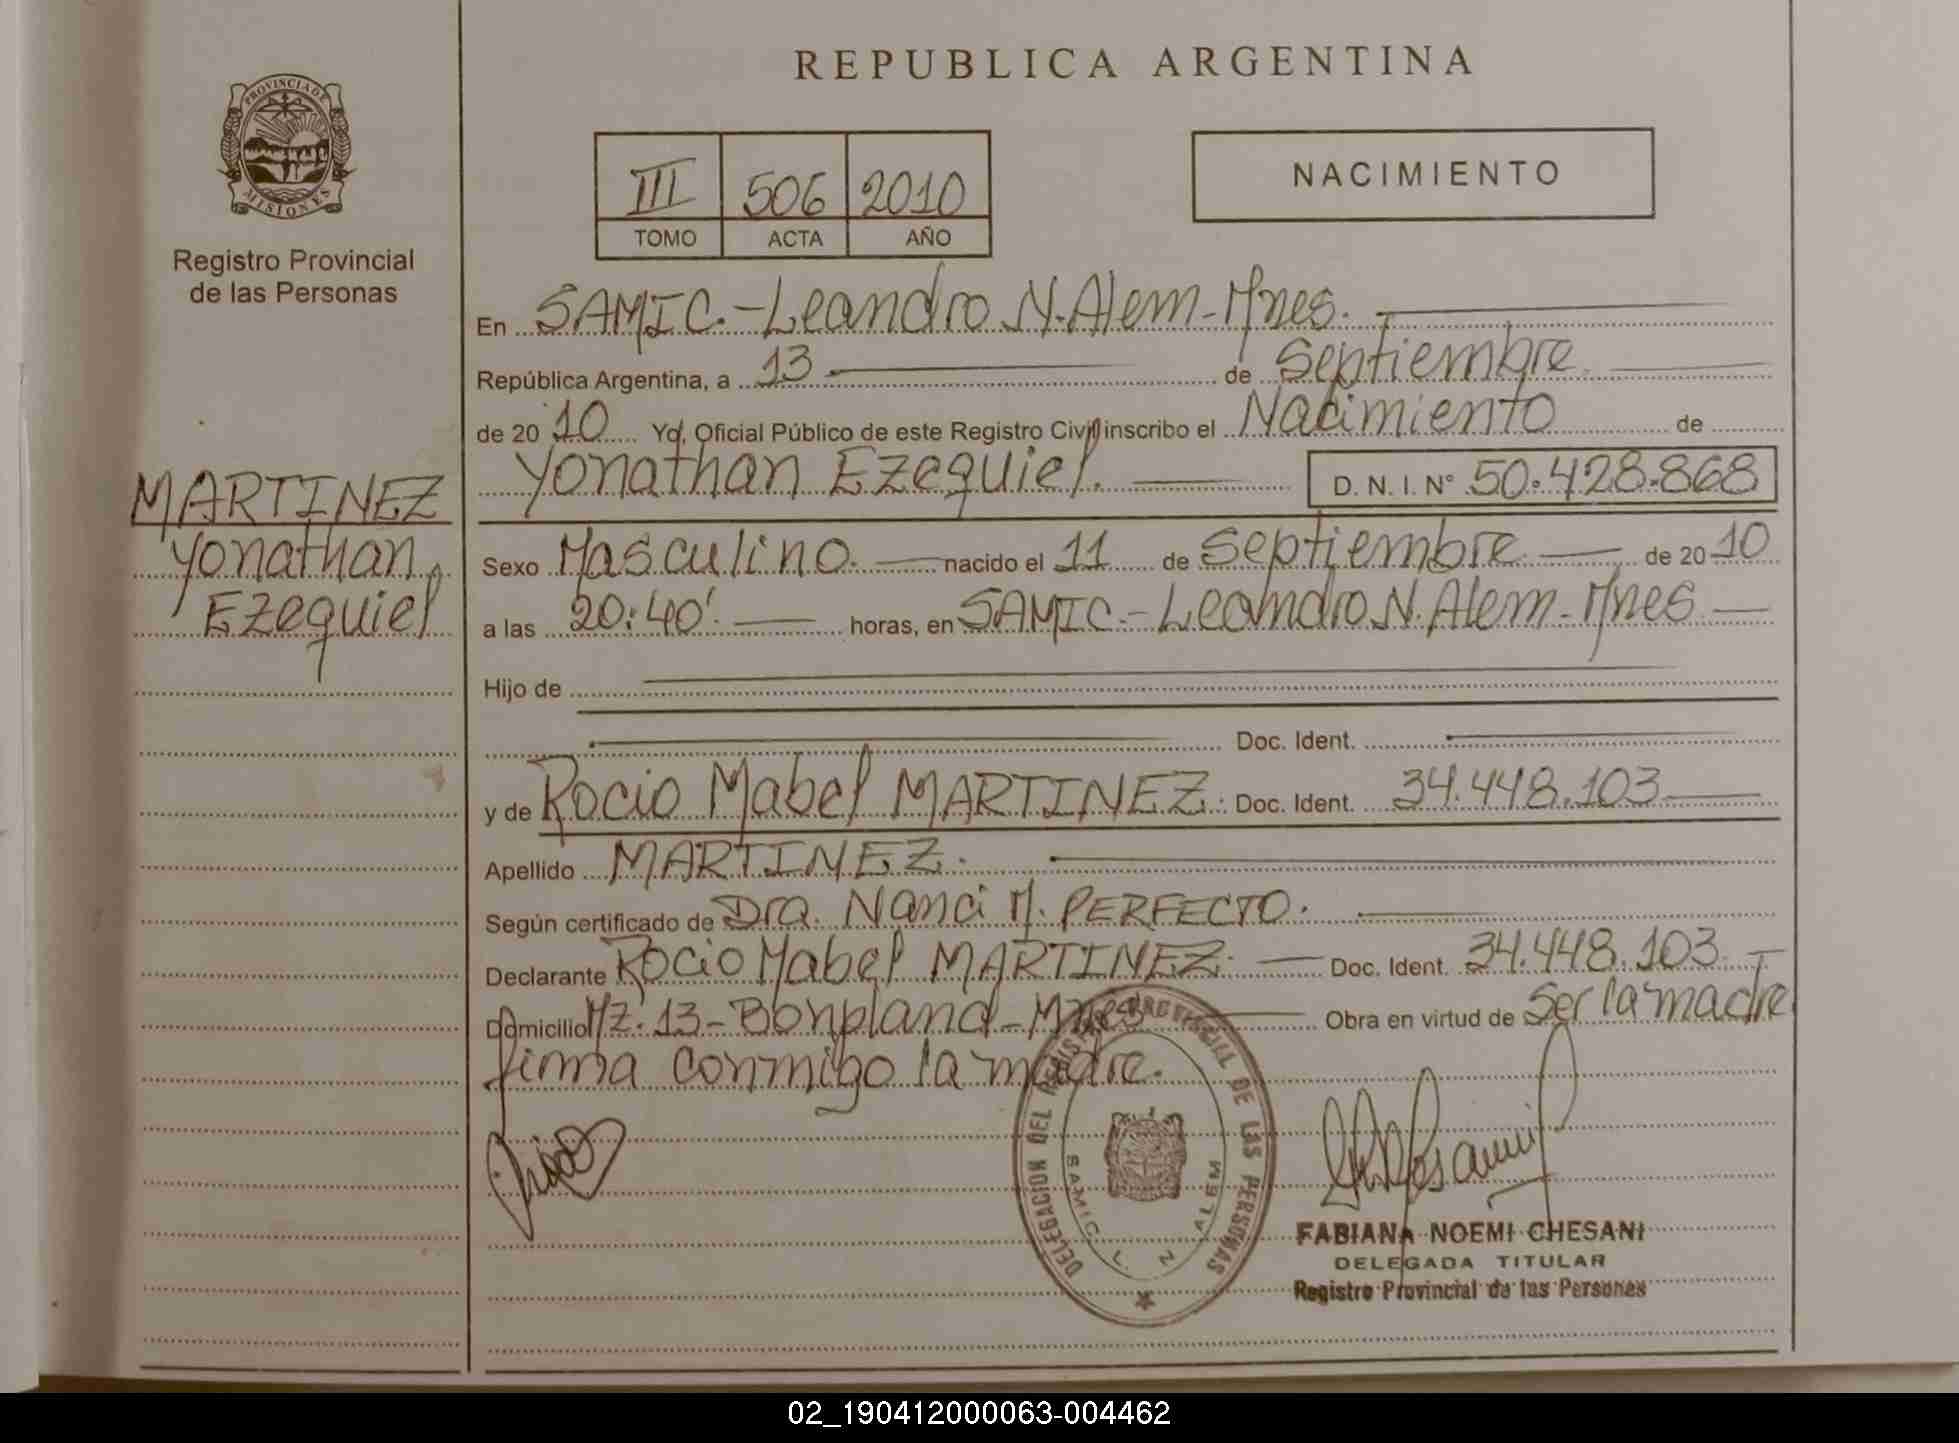 REPUBLICA ARGENTINA
PROVINCIA DE
MISIONES
Registro Provincial
de las Personas
III 506 2010
TOMO ACTA AÑO
NACIMIENTO
En SAMIC.-Leandro N. Alem-Mnes.
República Argentina, a 13 de Septiembre
de 20 10 Yo, Oficial Público de este Registro Civil inscribo el Nacimiento de
Yonathan Ezequiel. D. N. I. N° 50.428.868
MARTINEZ
Yonathan
Ezequiel
Sexo Masculino. nacido el 11 de Septiembre de 20 10
a las 20:40'. horas, en SAMIC.-Leandro N. Alem-Mnes
Hijo de
Doc. Ident.
y de Rocio Mabel MARTINEZ. Doc. Ident. 34.448.103
Apellido MARTINEZ.
Según certificado de Dra. Nanci M. PERFECTO.
Declarante Rocio Mabel MARTINEZ. Doc. Ident. 34.448.103
Domicilio Mz. 13-Bonpland-Mnes Obra en virtud de Ser la madre
firma conmigo la madre.
DELEGACION DEL REGISTRO PROVINCIAL DE LAS PERSONAS
SAMIC L. N. ALEM
FABIANA NOEMI CHESANI
DELEGADA TITULAR
Registro Provincial de las Personas
02_190412000063-004462